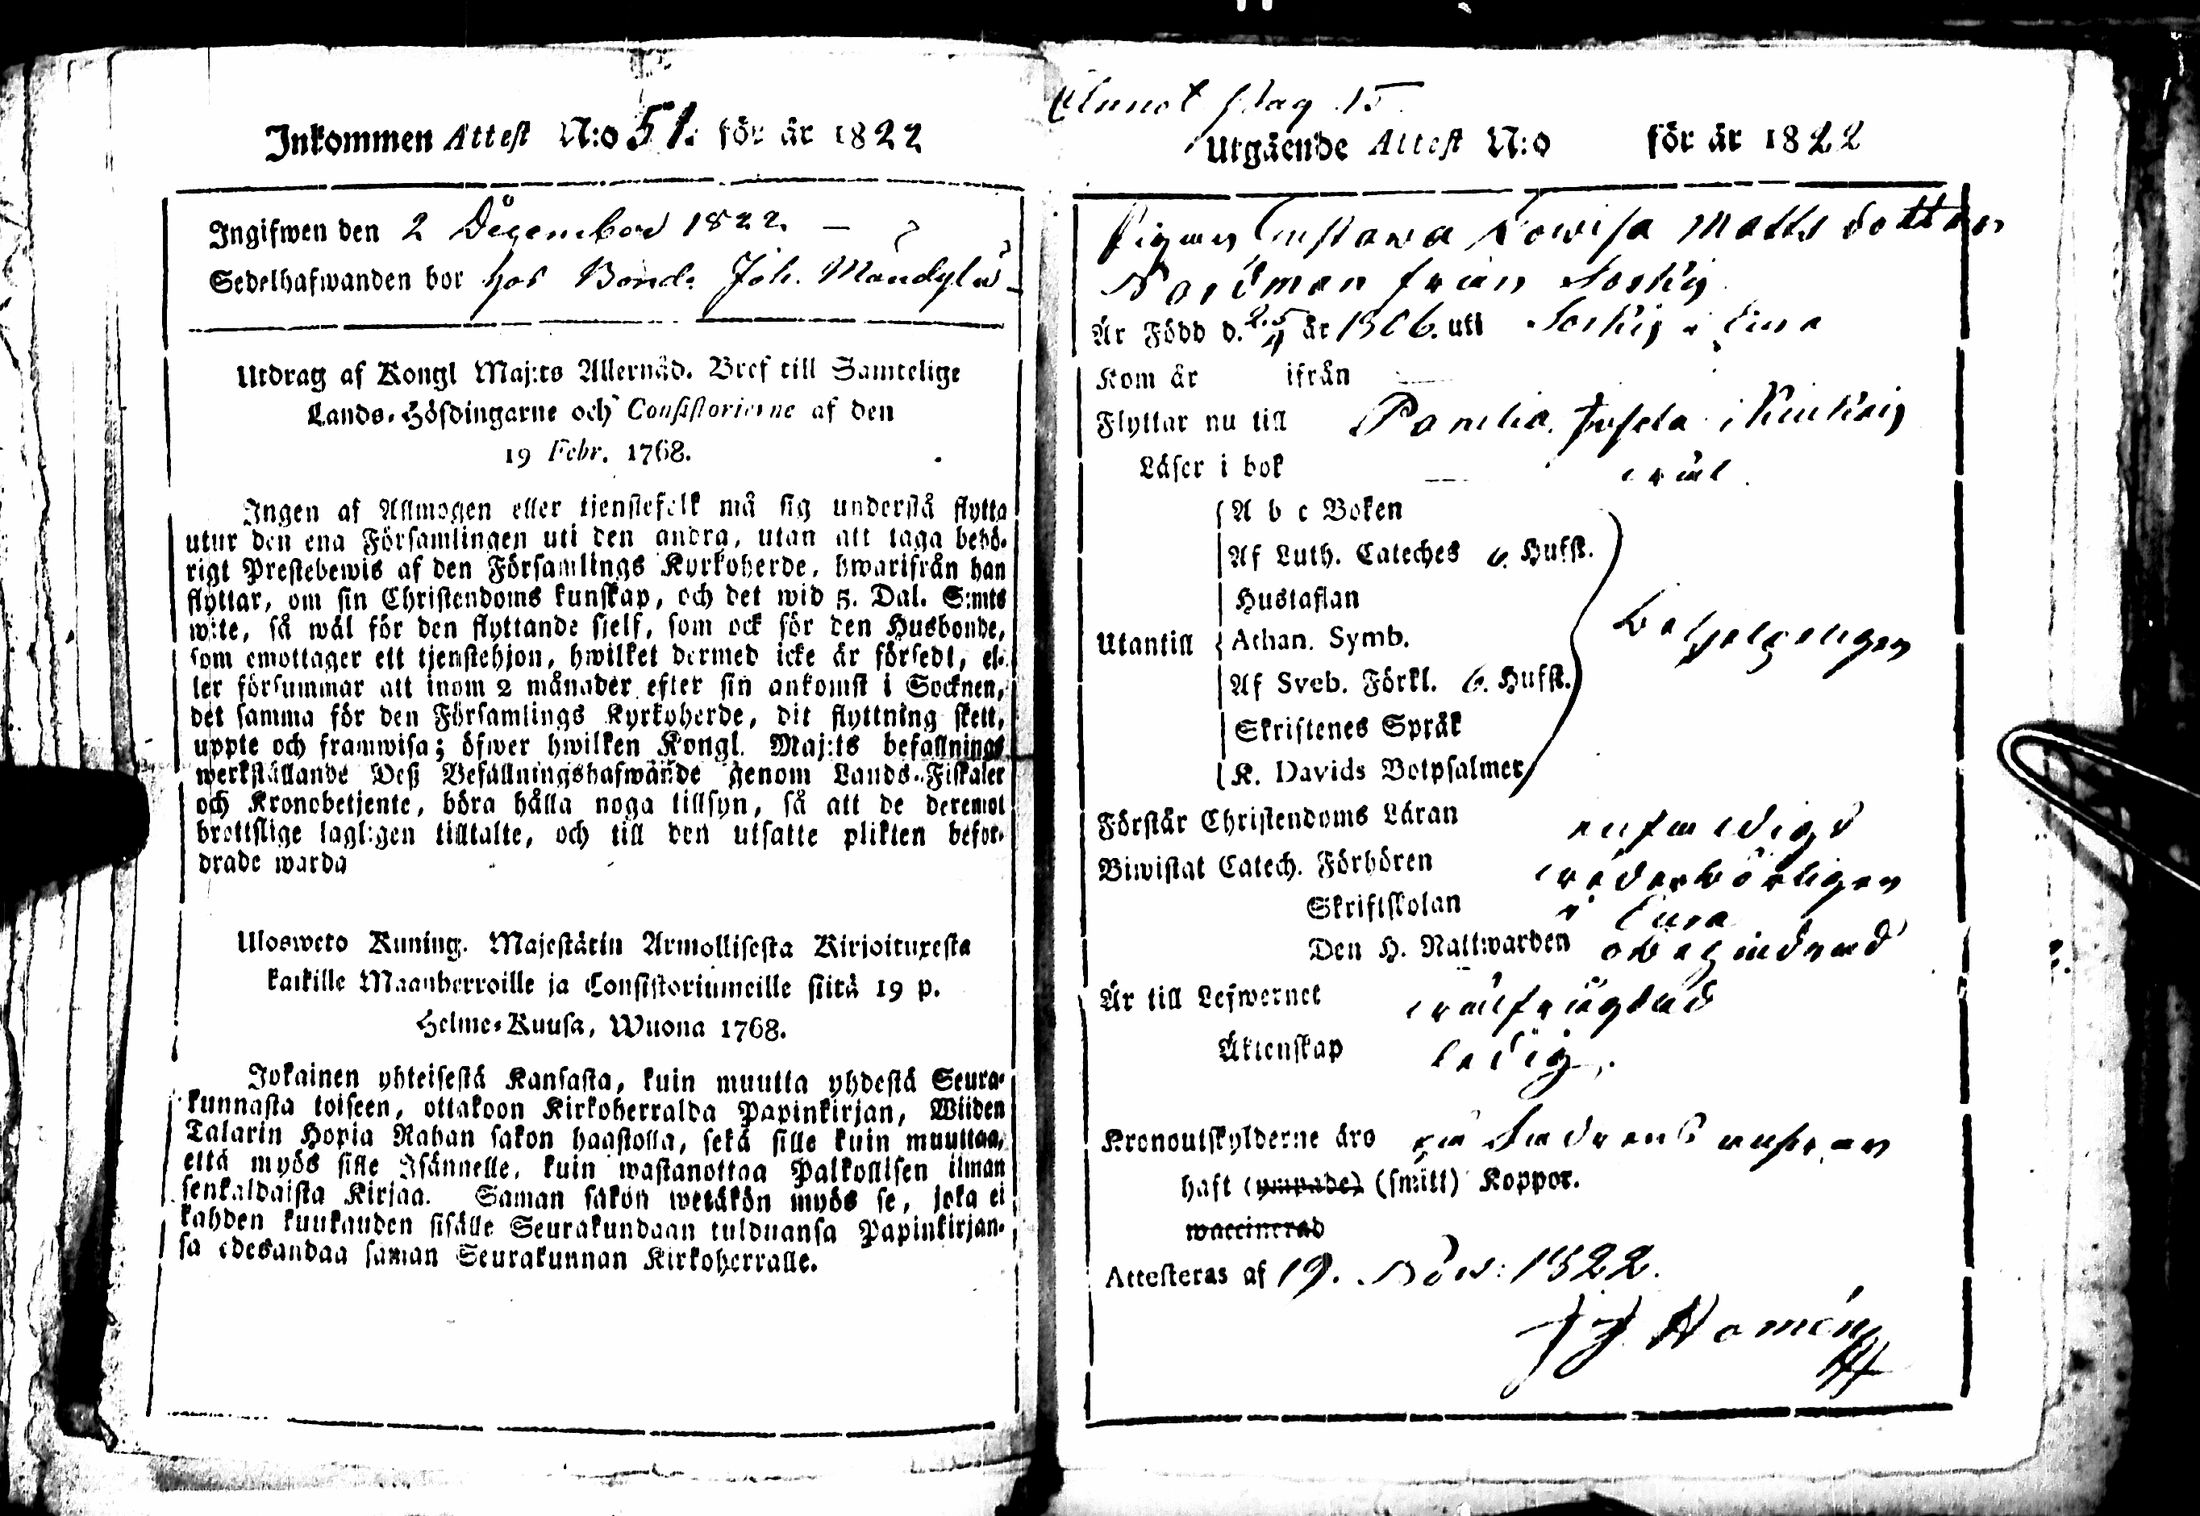 Inkommen Attest N:o 51. för år 1822
Ingifwen den 2 December 1822. —
Sedelhafwanden bor hos Bond. Joh. Mändylä
Utdrag af Kongl Maj:ts Allernåd. Bref till Samtelige
Lands-Höfdingarne och Consistorierne af den
19 Febr. 1768.
Ingen af Allmogen eller tjenstefolk må sig understå flytta
utur den ena Församlingen uti den andra, utan att taga behö-
rigt Prestebewis af den Församlings Kyrkoherde, hwarifrån han
flyttar, om sin Christendoms kunskap, och det wid 5. Dal. S:mts
wite, så wäl för den flyttande sjelf, som ock för den Husbonde,
som emottager ett tjenstehjon, hwilket dermed icke är försedt, el-
ler försummar att inom 2 månader efter sin ankomst i Socknen,
det samma för den Församlings Kyrkoherde, dit flyttning skett,
uppte och framwisa; öfwer hwilken Kongl. Maj:ts befallnings
werkställande Deß Befallningshafwande genom Lands-Fiskaler
och Kronobetjente, böra hålla noga tillsyn, så att de deremot
brottslige lagligen tilltalte, och till den utsatte plikten befor-
drade warda
Ulosweto Kuning. Majestätin Armollisesta Kirjoituxesta
kaikille Maanherroille ja Consistoriumeille siitä 19 p.
Helme-Kuusa, Wuona 1768.
Jokainen yhteisestä Kansasta, kuin muutta yhdestä Seura-
kunnasta toiseen, ottakoon Kirkoherralda Papinkirjan, Wiiden
Talarin Hopia Rahan sakon haastolla, sekä sille kuin muuttaa,
että myös sille Isännelle, kuin wastanottaa Palkollisen ilman
senkaldaista Kirjaa. Saman sakon wetäkön myös se, joka ei
kahden kuukauden sisälle Seurakundaan tulduansa Papinkirjan-
sa edesandaa saman Seurakunnan Kirkoherralle.
pag 15
Utgående Attest N:o för år 1822
Pigan Gustava Lowisa Matts dotter
Nordman från Sorkis
Är Född d. 25/4 år 1806. uti Sorkis i Eura
Kom år ifrån
Flyttar nu till Panelia, i Kiukais
Läser i bok — wäl
A b c Boken
Af Luth. Cateches 6. Hufst.
Hustaflan
Utantill Athan. Symb.
Af Sveb. Förkl. 6. Hufst.
Skriftenes Språk
K. Davids Botpsalmer
Förstår Christendoms Läran enfaldigt
Biwistat Catech. Förhören wederbörligen
Skriftskolan i Eura
Den H. Nattwarden obehindrad
Är till Lefwernet wälfrägdad
Äktenskap ledig.
Kronoutskylderne äro på Fadrens ansvar
haft (ympade) (smitt) Koppor.
waccinerad
Attesteras af 19. Nov: 1822.
Homén